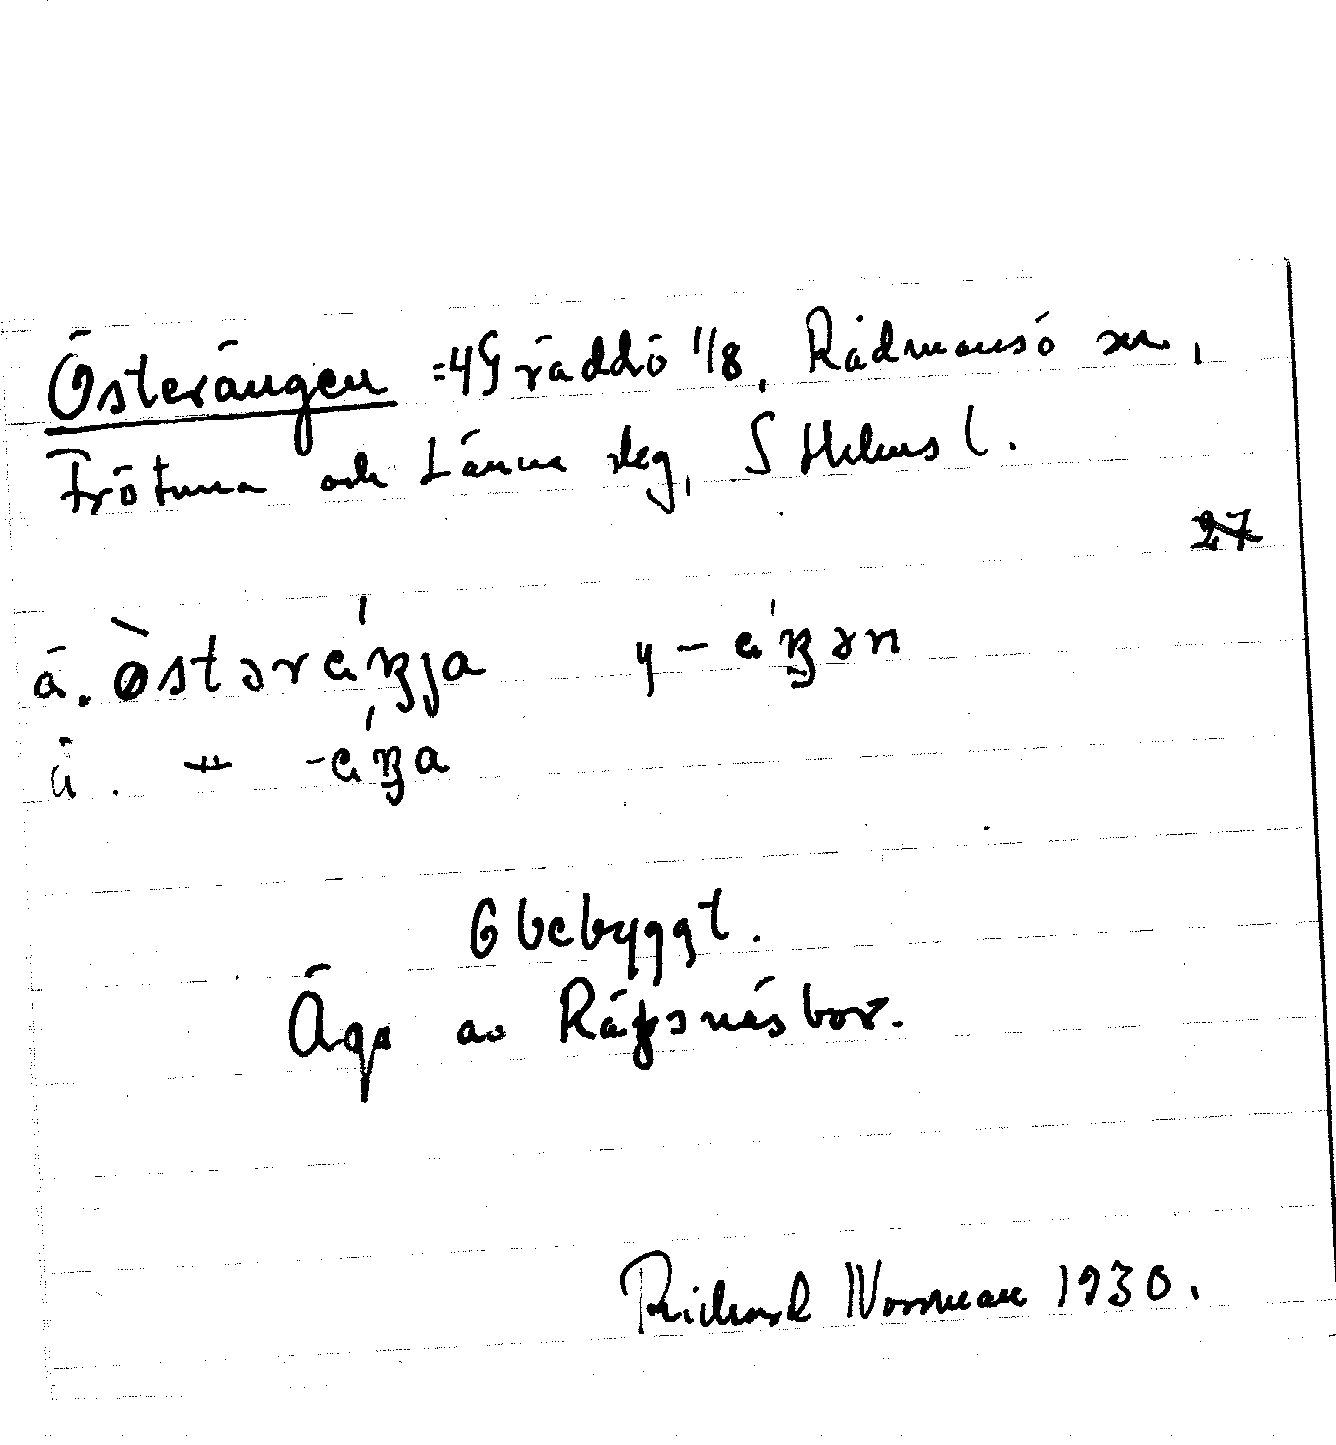 Österängen =4 Gräddö 1/8, Rådmansö sn,
Frötuna och Länna skg, Sthlms l.
27
ä. østəräŋja y - äŋən
ä. -"- -äŋa
Obebyggt.
Äga av Räfsnäsbor.
Richard Norrman 1930.